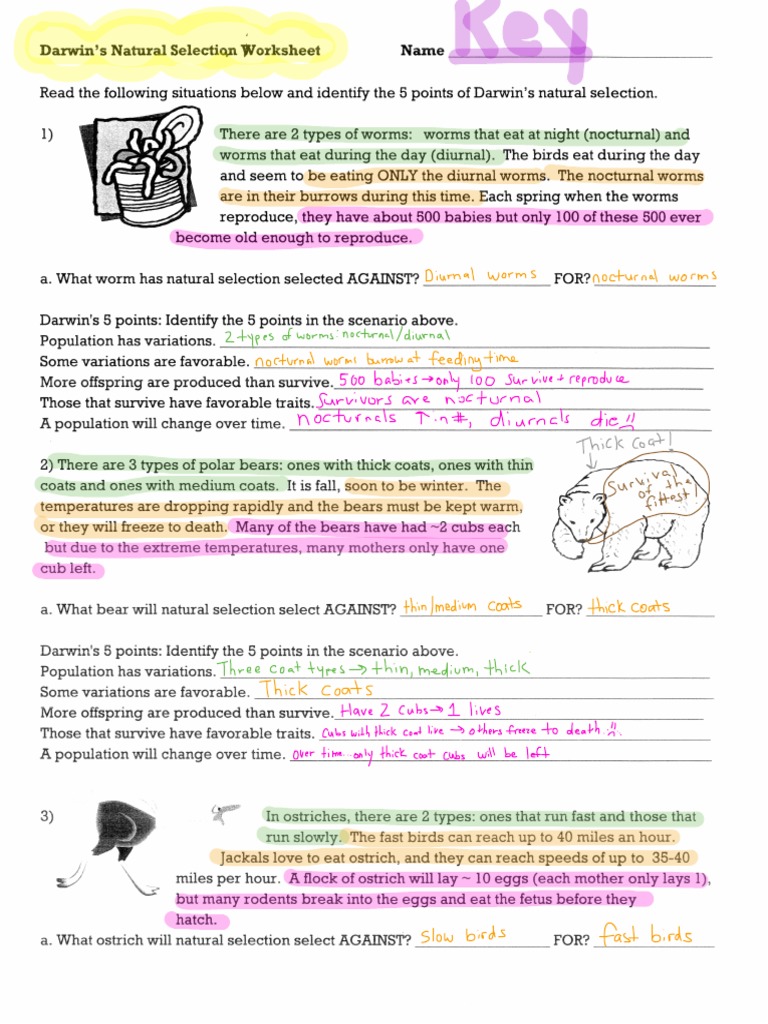 Darwin's Natural Selection Worksheet Name Key
Read the following situations below and identify the 5 points of Darwin's natural selection.
1) There are 2 types of worms: worms that eat at night (nocturnal) and
worms that eat during the day (diurnal). The birds eat during the day
and seem to be eating ONLY the diurnal worms. The nocturnal worms
are in their burrows during this time. Each spring when the worms
reproduce, they have about 500 babies but only 100 of these 500 ever
become old enough to reproduce.
a. What worm has natural selection selected AGAINST? Diurnal worms FOR? nocturnal worms
Darwin's 5 points: Identify the 5 points in the scenario above.
Population has variations. 2 types of worms: nocturnal/diurnal
Some variations are favorable. nocturnal worms burrow at feeding time
More offspring are produced than survive. 500 babies → only 100 survive + reproduce
Those that survive have favorable traits. Survivors are nocturnal
A population will change over time. nocturnals ↑ in #, diurnals die
Thick coat!
2) There are 3 types of polar bears: ones with thick coats, ones with thin
coats and ones with medium coats. It is fall, soon to be winter. The
temperatures are dropping rapidly and the bears must be kept warm,
or they will freeze to death. Many of the bears have had ~2 cubs each
but due to the extreme temperatures, many mothers only have one
cub left.
Survival
of the
fittest!
a. What bear will natural selection select AGAINST? thin/medium coats FOR? thick coats
Darwin's 5 points: Identify the 5 points in the scenario above.
Population has variations. Three coat types → thin, medium, thick
Some variations are favorable. Thick coats
More offspring are produced than survive. Have 2 cubs → 1 lives
Those that survive have favorable traits. Cubs with thick coat live → others freeze to death
A population will change over time. over time...only thick coat cubs will be left
3) In ostriches, there are 2 types: ones that run fast and those that
run slowly. The fast birds can reach up to 40 miles an hour.
Jackals love to eat ostrich, and they can reach speeds of up to 35-40
miles per hour. A flock of ostrich will lay ~ 10 eggs (each mother only lays 1),
but many rodents break into the eggs and eat the fetus before they
hatch.
a. What ostrich will natural selection select AGAINST? slow birds FOR? fast birds